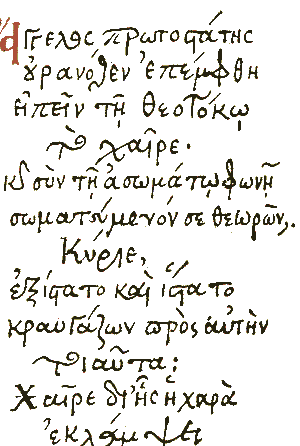 Ἄγγελος πρωτοστάτης
οὐρανόθεν ἐπέμφθη
εἰπεῖν τῇ Θεοτόκῳ
τὸ χαῖρε.
κὶ σὺν τῇ ἀσωμάτῳ φωνῇ
σωματούμενόν σε θεωρῶν,
Κύριε,
ἐξίστατο καὶ ἵστατο
κραυγάζων πρὸς αὐτὴν
τοιαῦτα;
Χαῖρε δι' ἧς ἡ χαρὰ
ἐκλάμψει